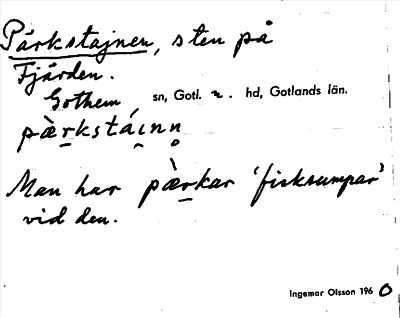 Pärkstajnen, sten på
Fjärden.
Gothem, sn, Gotl. n. hd, Gotlands län.
pæ̀rkstáınn̥
Man har pæ̀rkar 'fisksumpar'
vid den.
Ingemar Olsson 1960